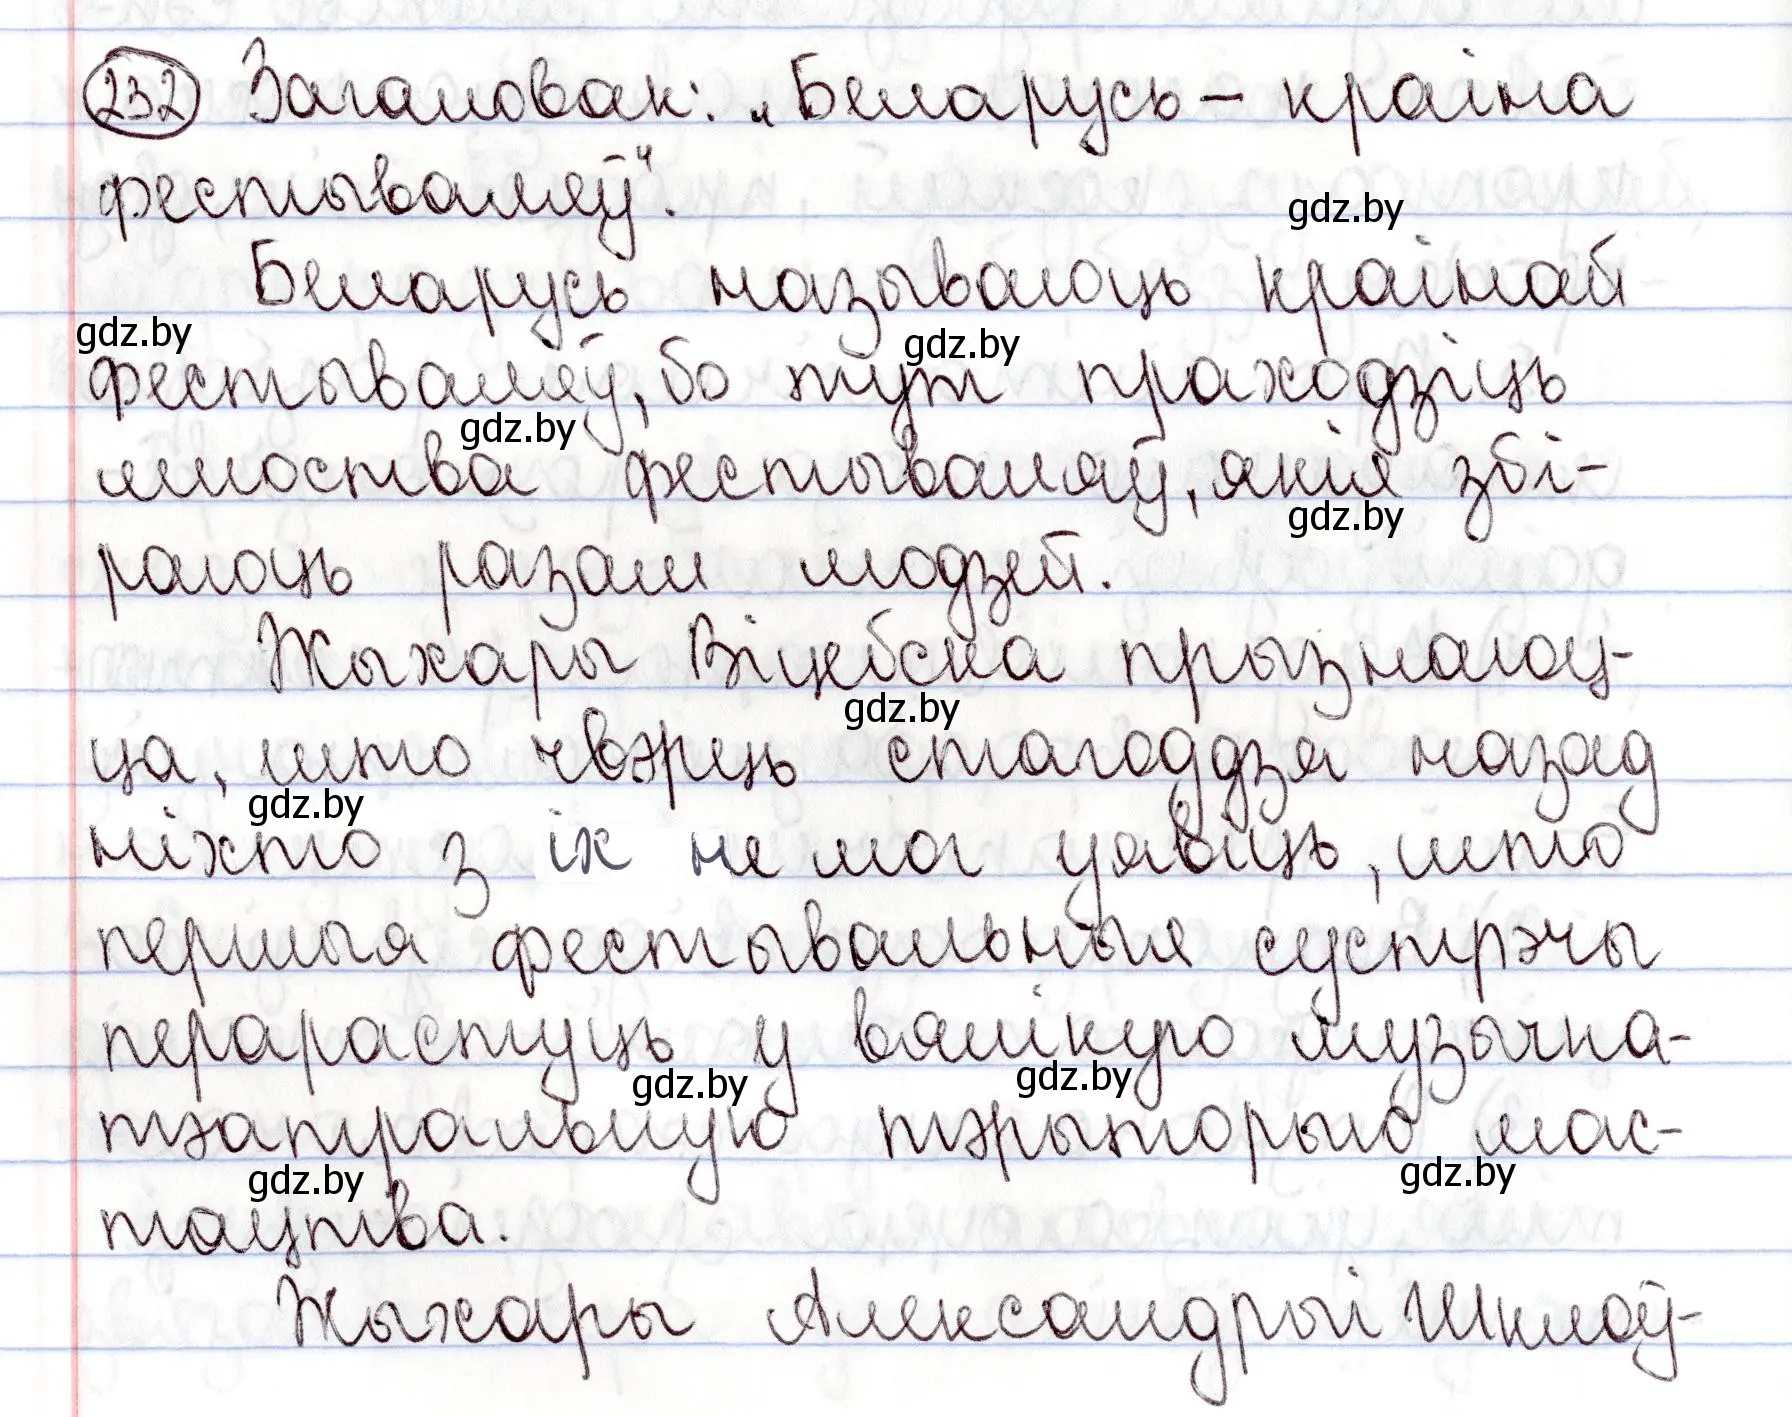 232 Загаловак: „Беларусь – краіна
фестываляў“.
gdz.by
Беларусь называюць краінай
gdz.by gdz.by
фестываляў, бо тут праходзіць
gdz.by
мноства фестываляў, якія збі-
gdz.by
раюць разам людзей.
Жыхары Віцебска прызнаюц-
gdz.by
ца, што чвэрць стагоддзя назад
gdz.by
ніхто з іх не мог уявіць, што
першыя фестывальныя сустрэчы
перарастуць у вялікую музычна-
gdz.by gdz.by
тэатральную тэрыторыю мас-
gdz.by gdz.by
тацтва.
Жыхары Александрыі Шклоў-